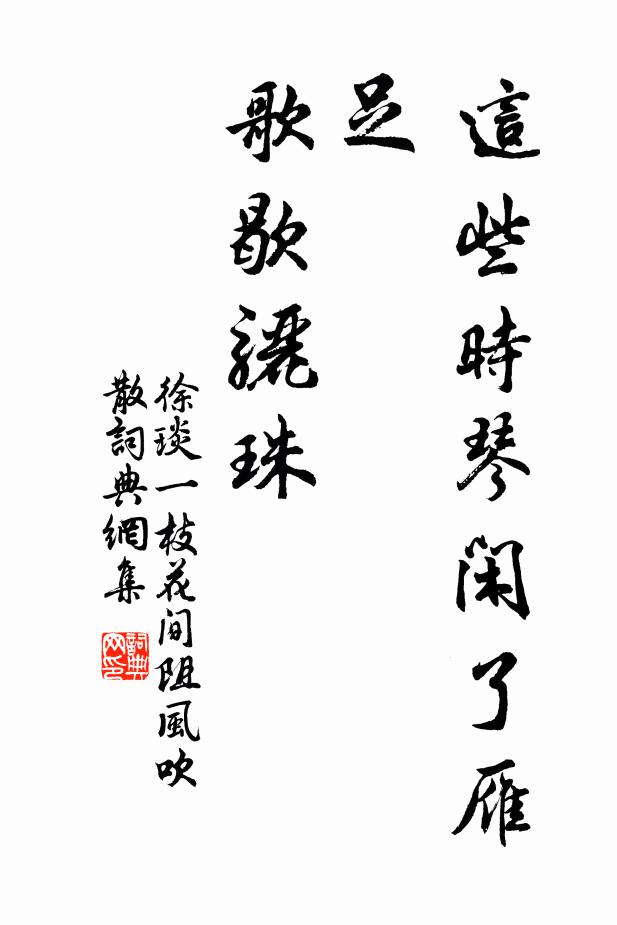 這些時琴閑了雁
足
歌歇驪珠
徐琰一枝花間阻風吹
散詞典網集
詞典
网印